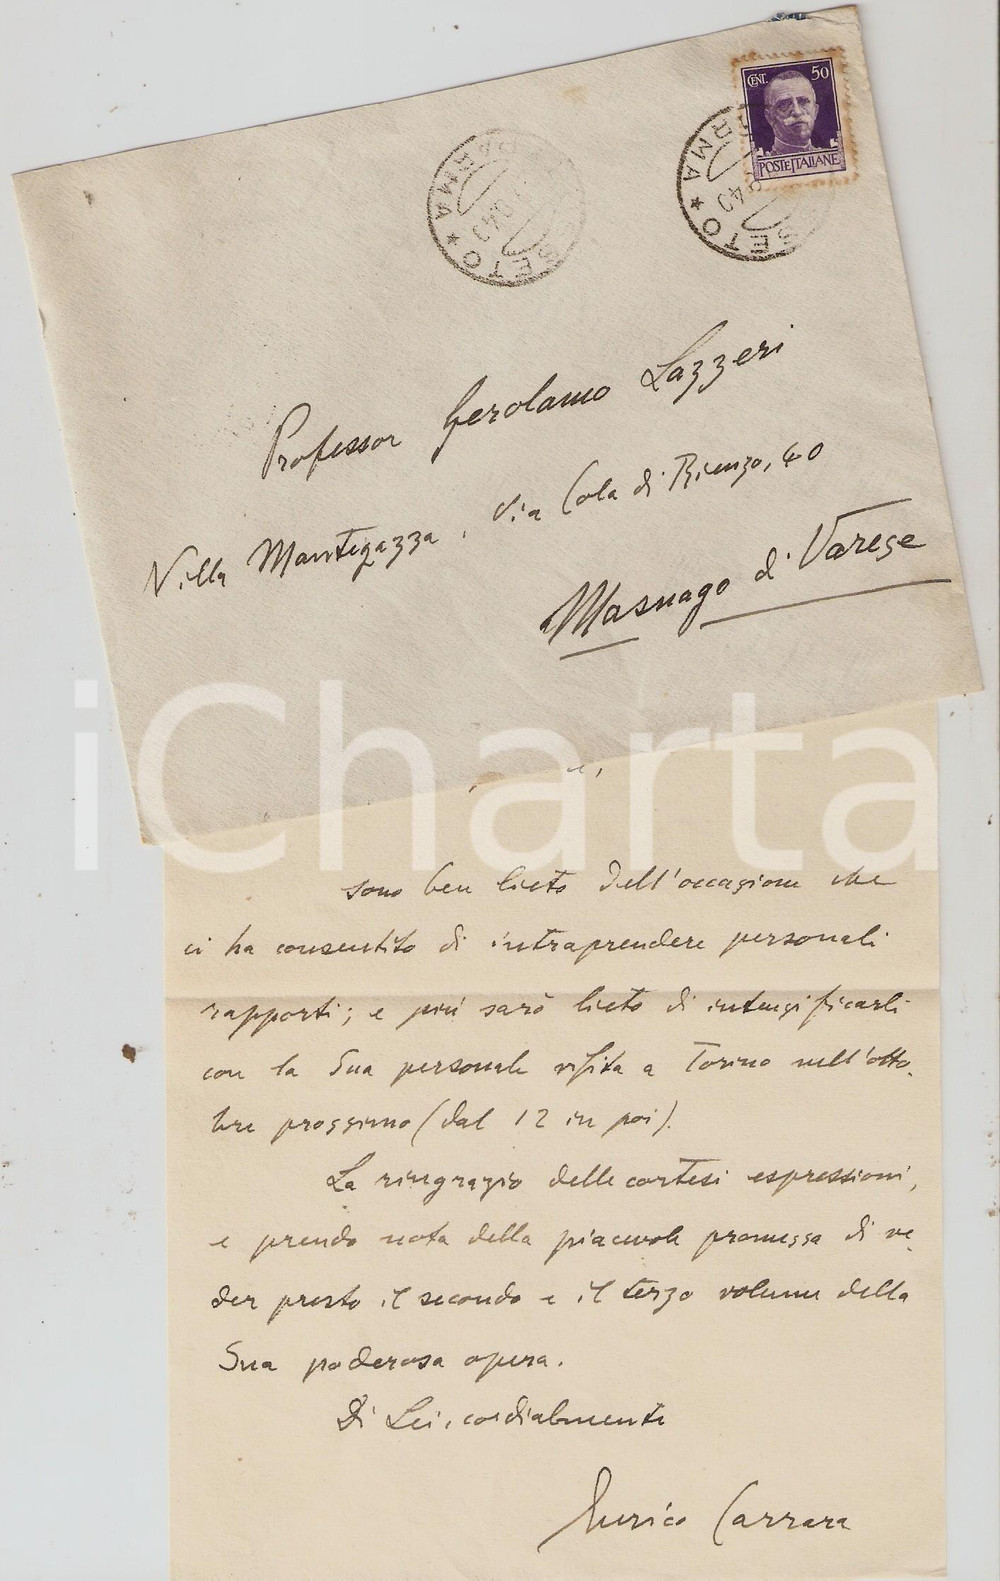 CENT. 50
POSTE ITALIANE
Professor Gerolamo Lazzeri
Villa Mantegazza, Via Cola di Rienzo, 40
Masnago di Varese
iCharta
sono ben lieto dell'occasione che
ci ha consentito di intraprendere personali
rapporti; e più sarò lieto di intensificarli
con la Sua personale visita a Torino nell'otto-
bre prossimo (dal 12 in poi).
La ringrazio delle cortesi espressioni,
e prendo nota della piacevole promessa di ve-
der presto il secondo e il terzo volume della
Sua poderosa opera.
Di Lei, cordialmente
Enrico Carrara